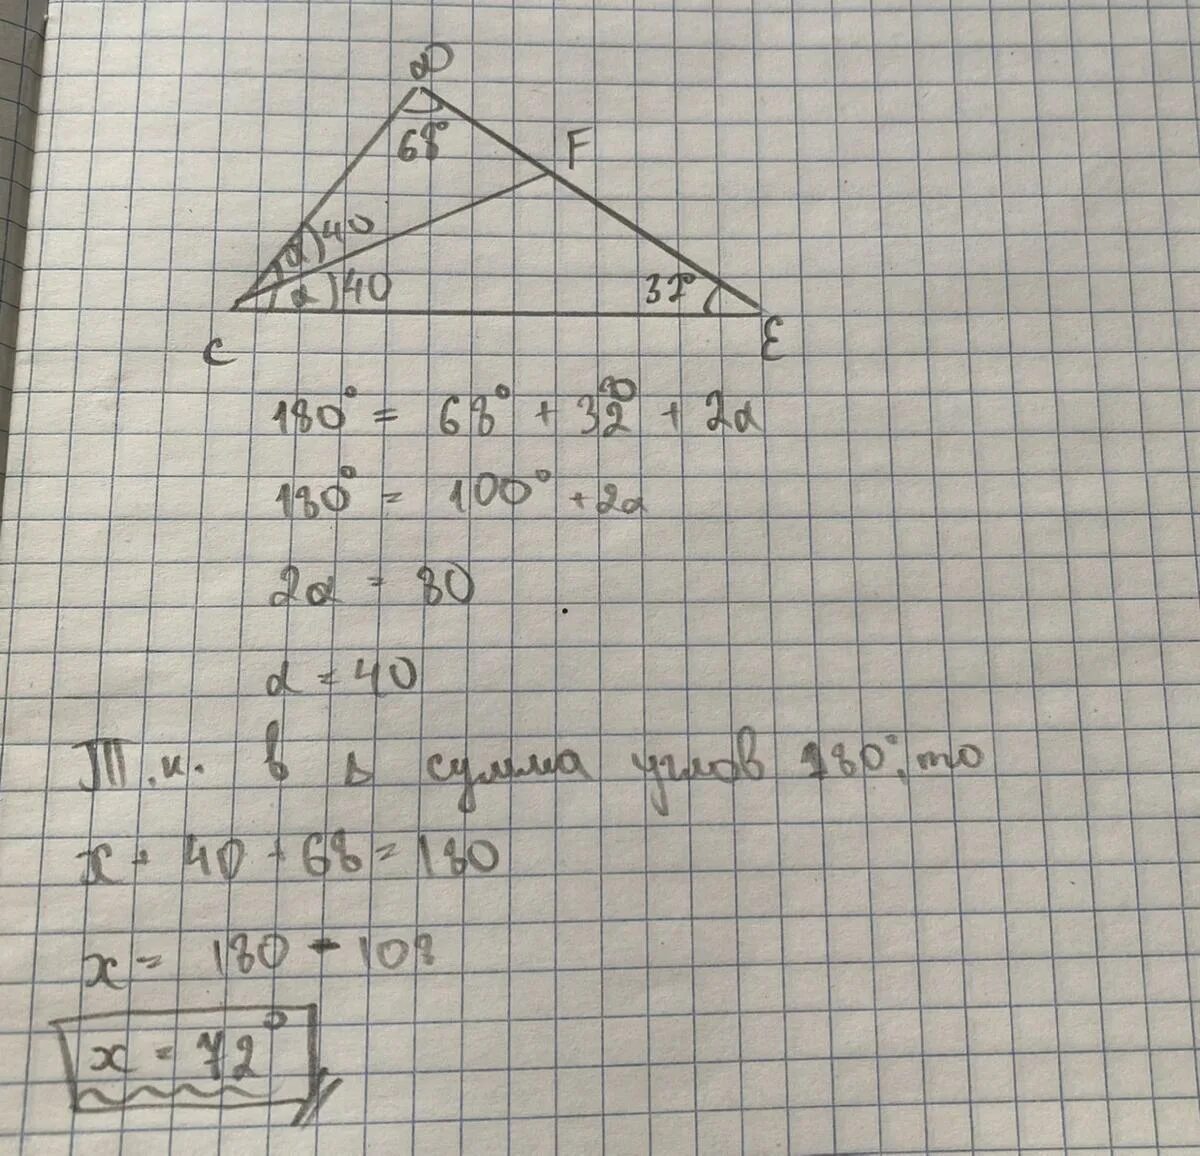 D
68°
F
α
40
α
40
32°
C
E
180° = 68° + 32° + 2α
180° = 100° + 2α
2α = 80
α = 40
Т.к. в Δ сумма углов 180°, то
x + 40 + 68 = 180
x = 180 - 108
x = 72°